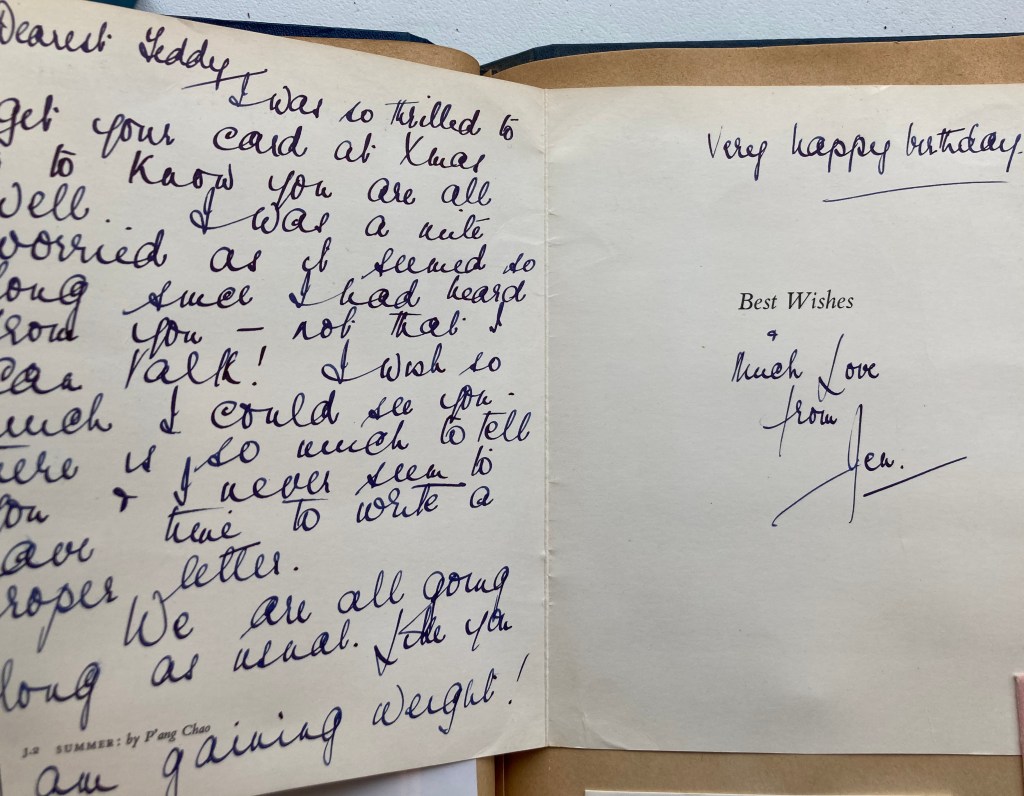 Dearest Teddy
I was so thrilled to
get your card at Xmas
& to Know you are all
well. I was a mite
worried as it seemed so
long since I had heard
from you – not that I
can talk! I wish so
much I could see you.
There is so much to tell
you & I never seem to
have time to write a
proper letter.
We are all going
long as usual. Like you
am gaining weight!
3.2 SUMMER: by P'ang Chao
Very happy birthday.
Best Wishes
&
Much Love
from
Jen.